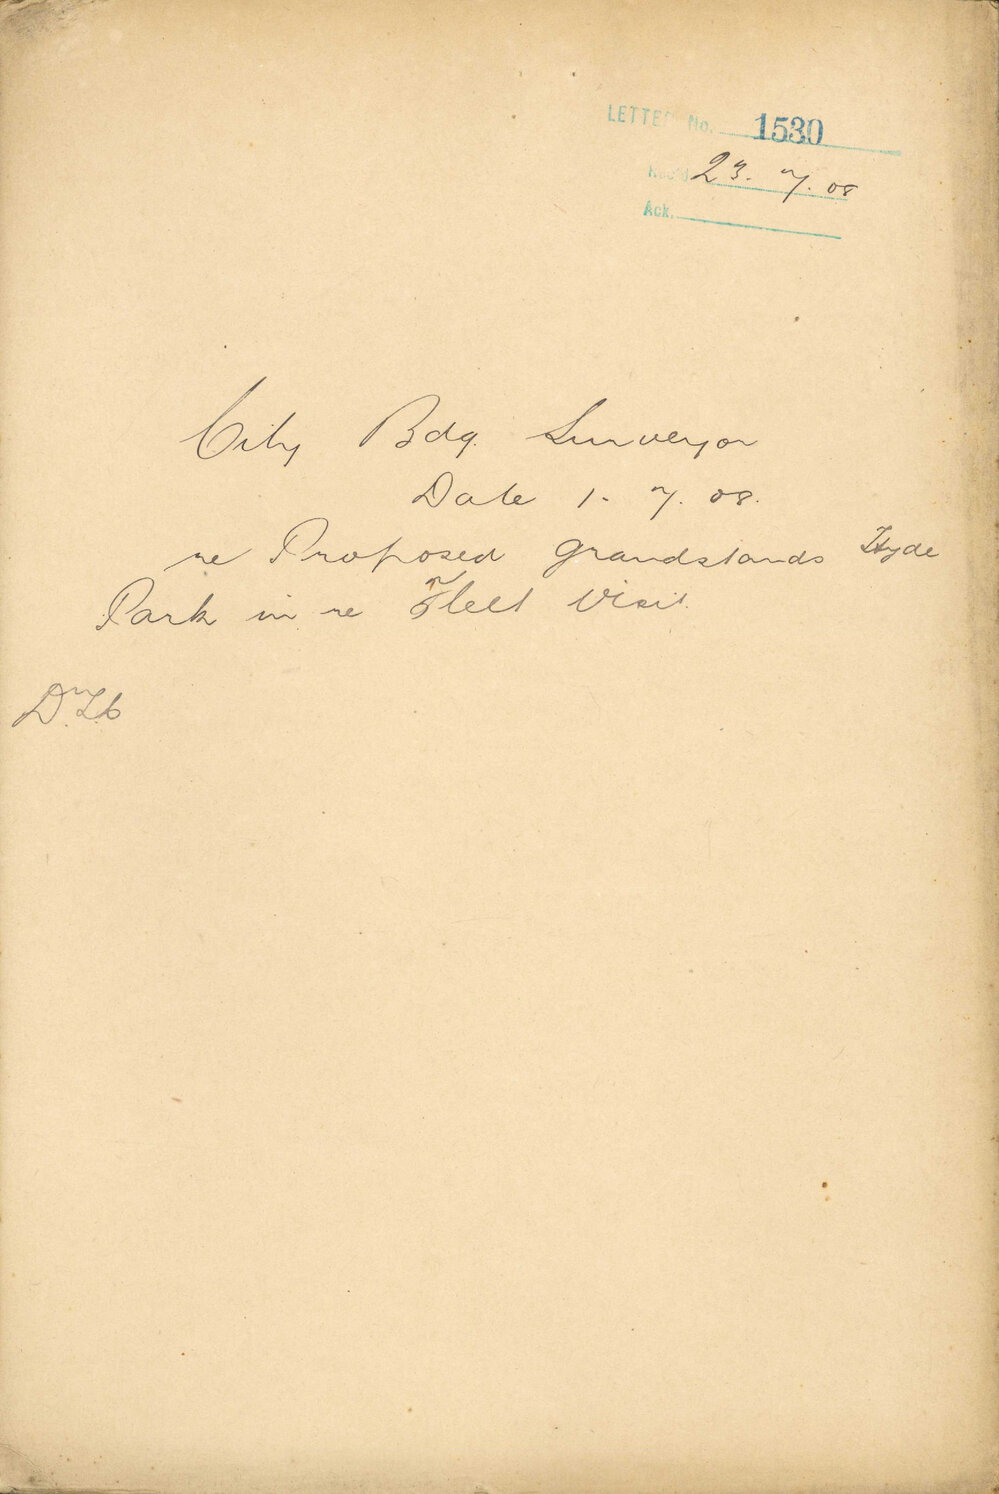 LETTER No. 1530
Rec'd 23. 7. 08
Ack.
City Bdg. Surveyor
Date 1. 7. 08.
re Proposed grandstands Hyde
Park in re Fleet Visit.